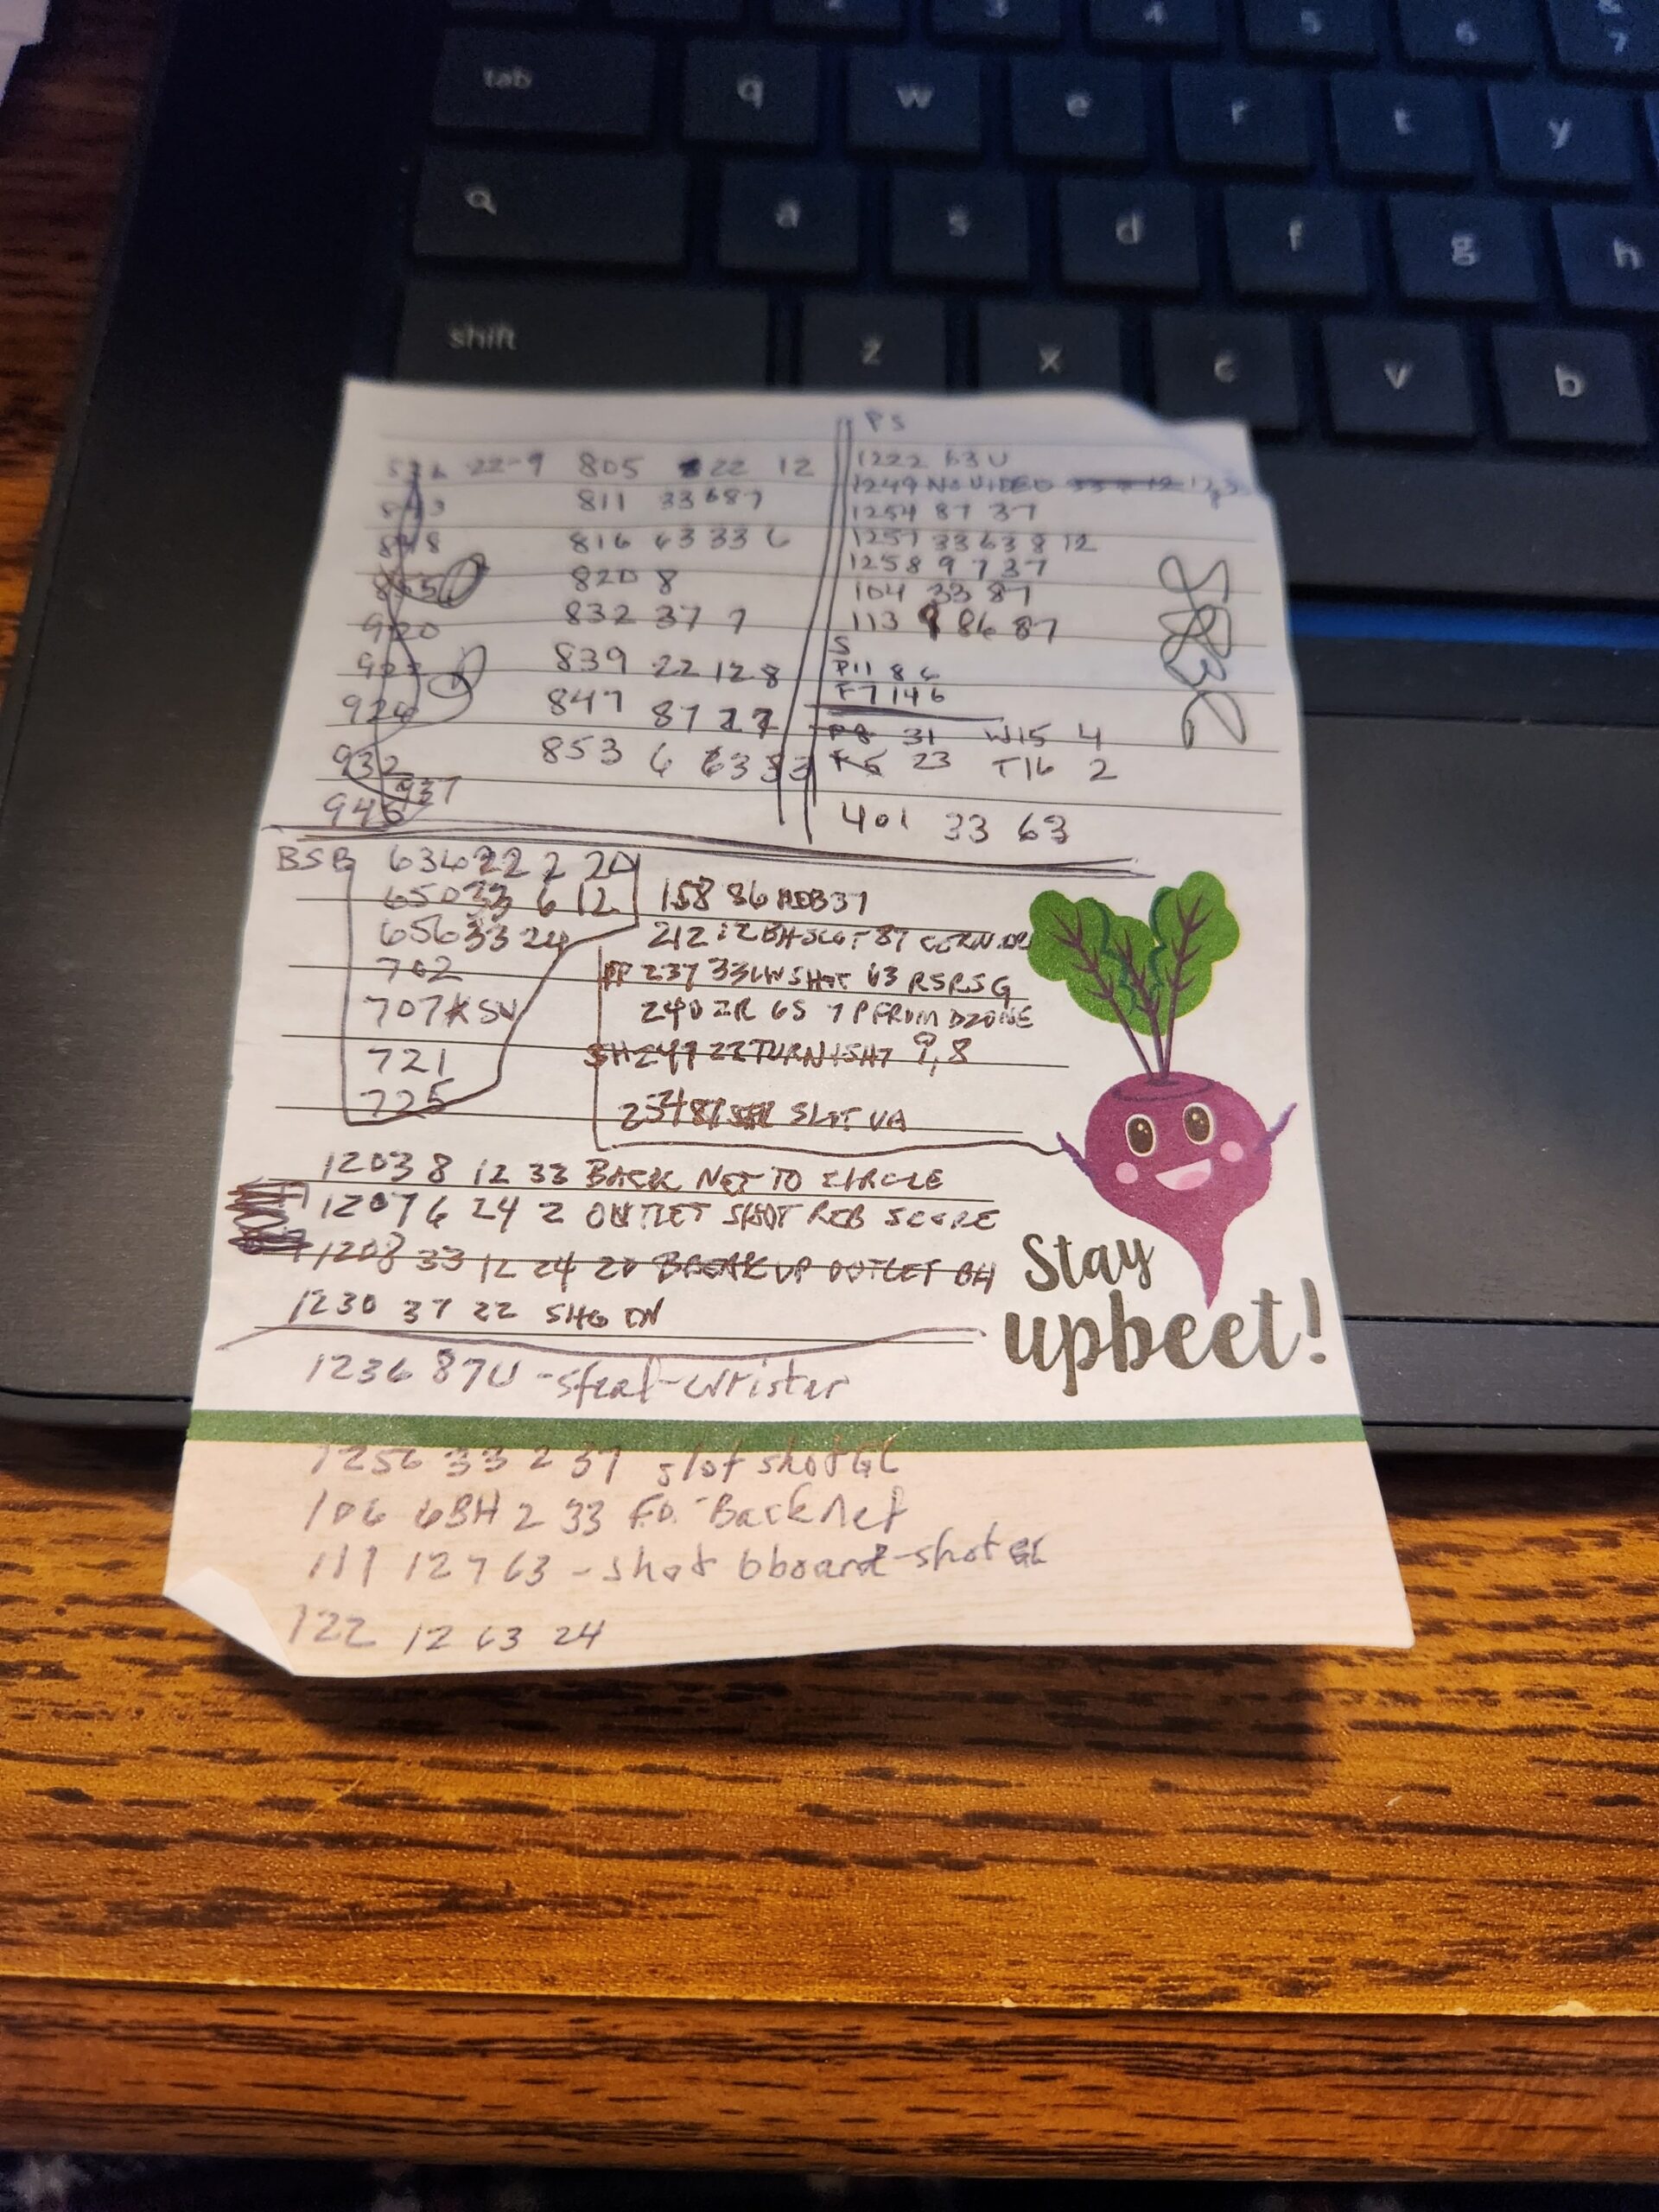 tab q w e r t y
a s d f g h
shift z x c v b
3 4 5 6 7
PS
22-9 805 22 12
811 33 6 87
816 63 33 6
820 8
832 37 7
839 22 12 8
847 87 27
853 6 63 33
920
924
932
937
945
1222 63 U
1249 NO VIDEO
1254 87 37
1257 33 63 8 12
1258 9 7 37
104 33 87
113 9 86 87
S
P11 8 6
F7 14 6
P8 31 W15 4
23 T16 2
401 33 63
BSB 634 22 2 20
650 33 6 12
656 33 24
702
707 K SV
721
725
158 86 REB 37
212 12 BH SLOT 87
PP 237 33 LW SHOT 63 RSRSG
240 2R 65 7 P FROM DZONE
SH 247 22 TURN 1 SHT 9, 8
254 87 SLOT
1203 8 12 33 BACK NET TO CIRCLE
1207 6 24 2 OUTLET SHOT REB SCORE
1208 33 12 24 20 BREAK UP OUTLET BH
1230 37 22 SHG
Stay
upbeet!
1236 87U - steal - wrister
1256 33 2 37 slot shot GL
106 6 BH 2 33 FO - Back Net
111 12 7 63 - shot bboard - shot GL
122 12 63 24